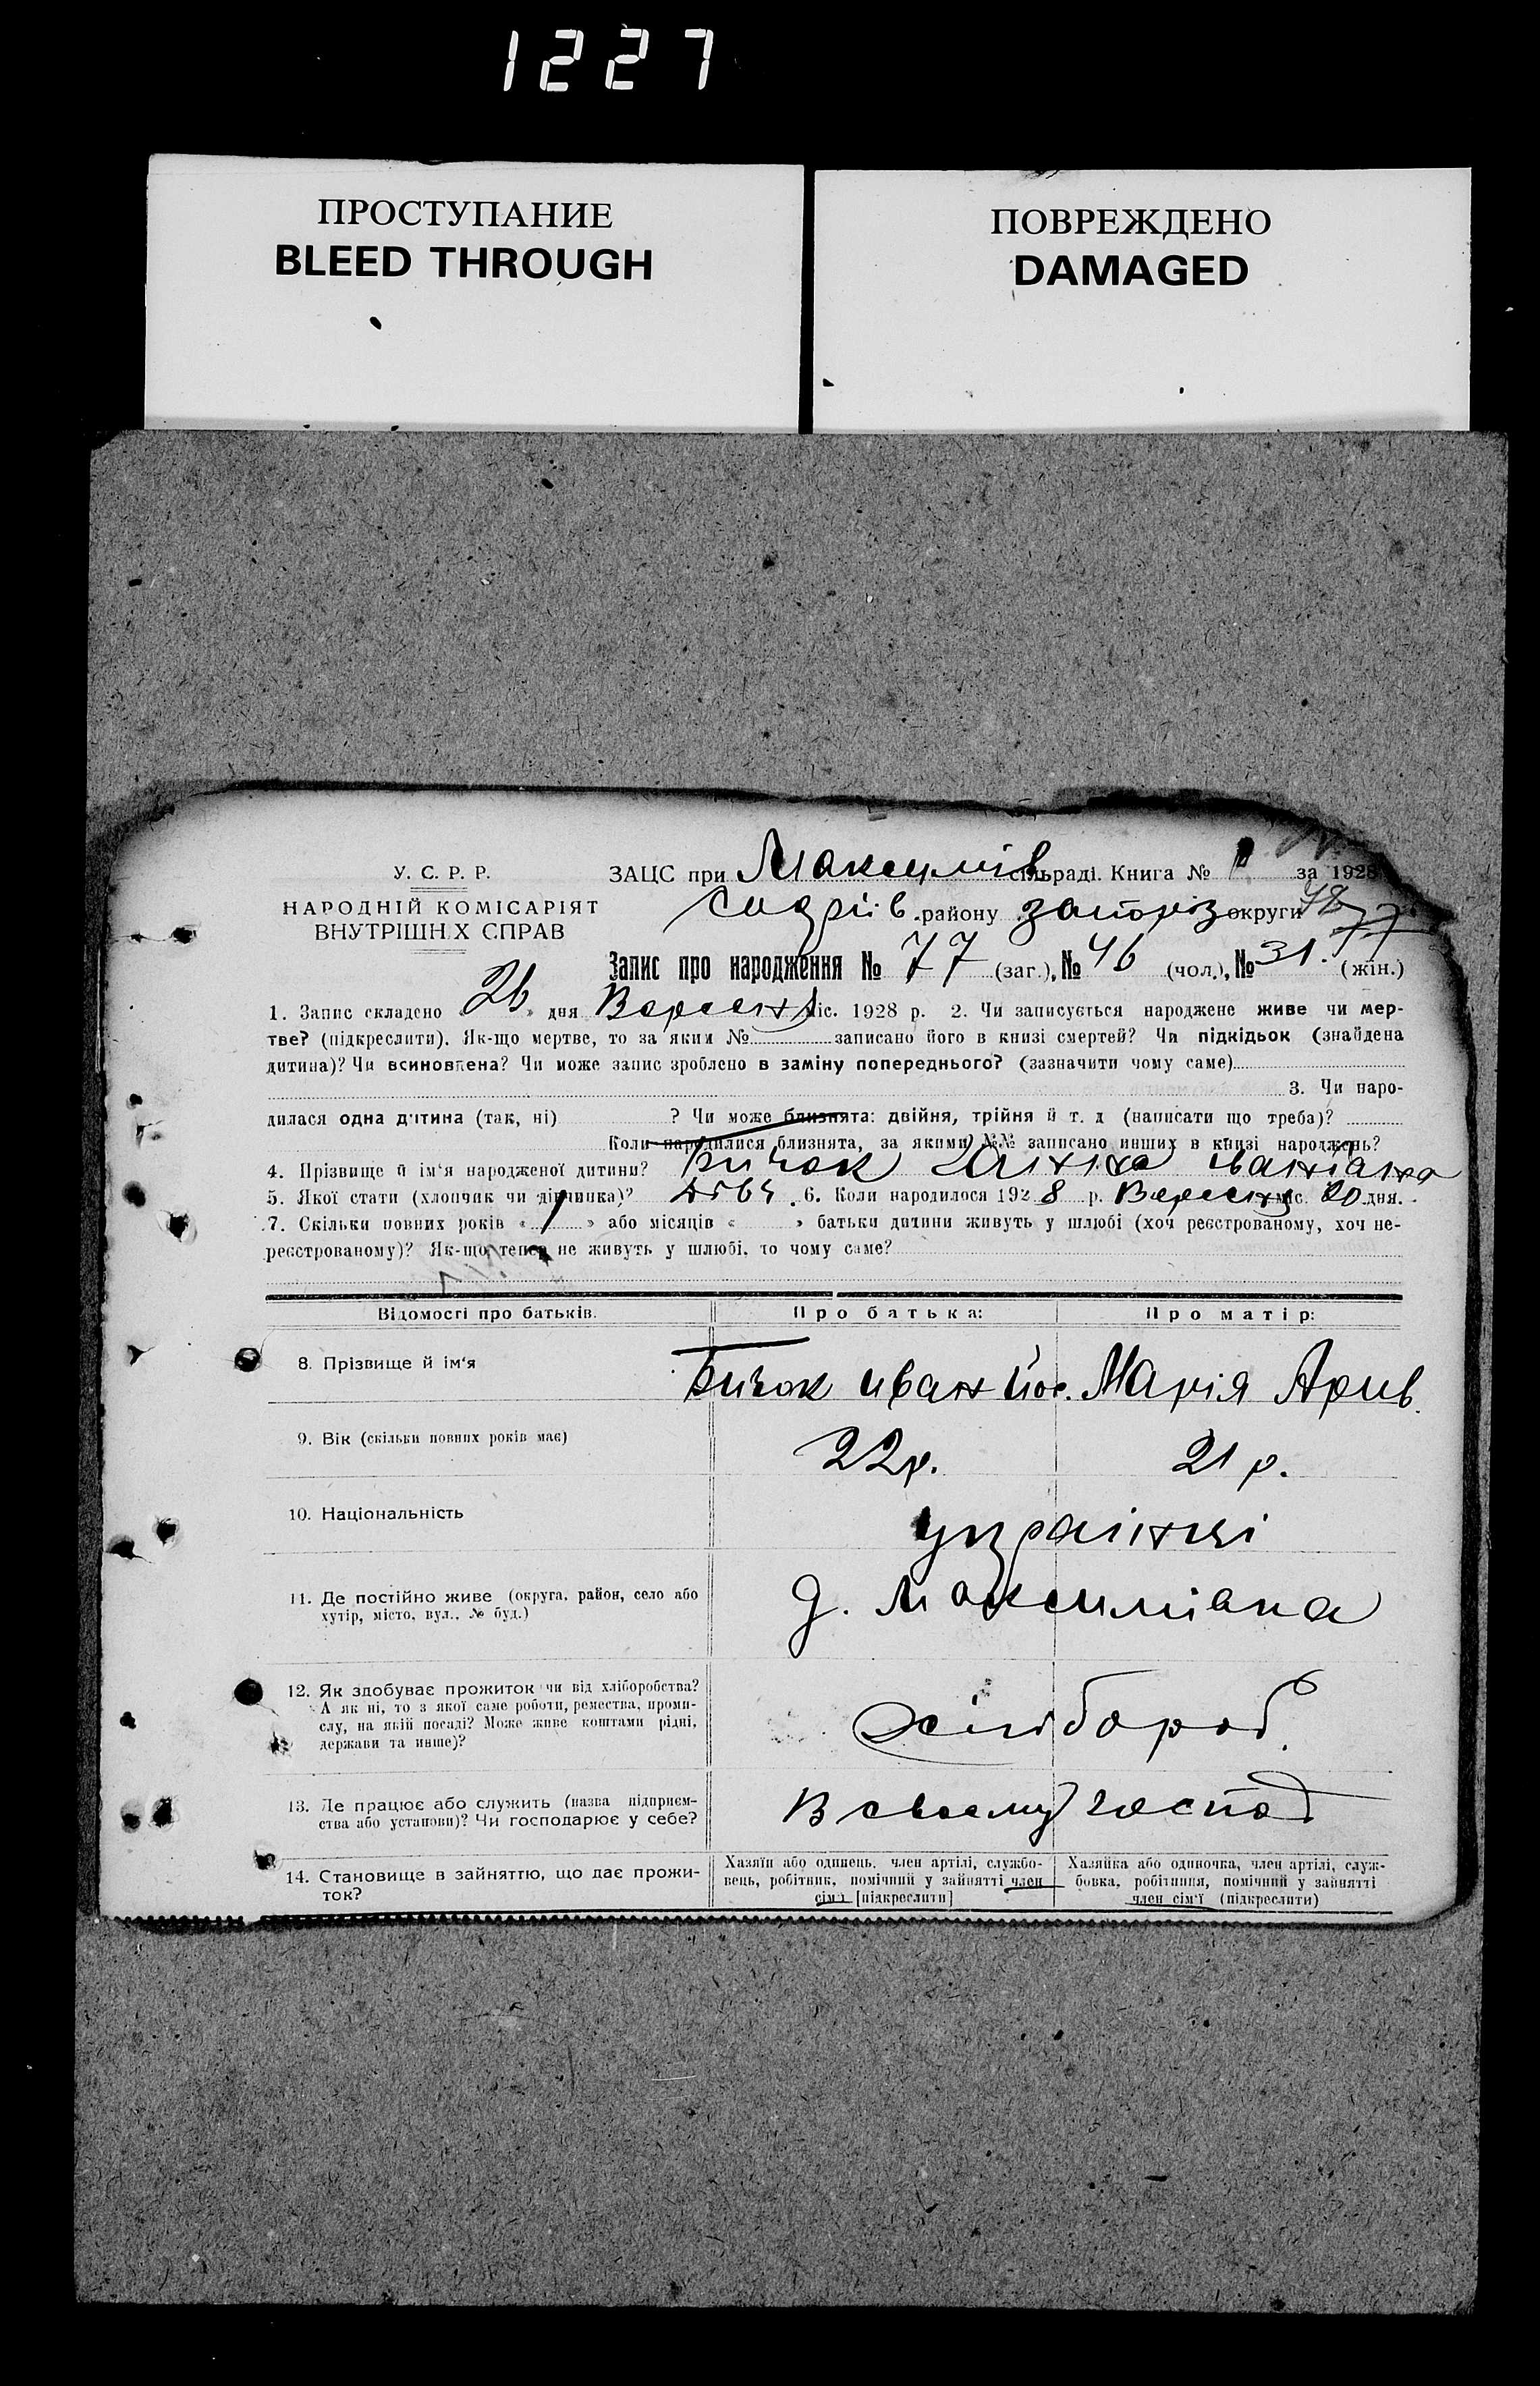 1227
ПРОСТУПАНИЕ
BLEED THROUGH
ПОВРЕЖДЕНО
DAMAGED
У. С. Р. Р.
НАРОДНІЙ КОМІСАРІЯТ
ВНУТРІШН.Х СПРАВ
ЗАЦС при Максимів сільраді. Книга № за 1928
району запоріз округи 48
77
Запис про народження № 77 (заг.), № 46 (чол.), № 31. (жін.)
1. Запис складено « 26 » дня Вересня міс. 1928 р. 2. Чи записується народжене живе чи мер-
тве? (підкреслити). Як-що мертве, то за яким № записано його в книзі смертей? Чи підкідьок (знайдена
дитина)? Чи всиновлена? Чи може запис зроблено в заміну попереднього? (зазначити чому саме)
3. Чи наро-
дилася одна дитина (так, ні) ? Чи може близнята: двійня, трійня й т. д (написати що треба)?
Коли народилися близнята, за якими №№ записано инших в книзі народжень?
4. Прізвище й ім'я народженої дитини? Бичок Ганна Іванівна
5. Якої стати (хлопчик чи дівчинка)? Дівч. 6. Коли народилося 1928 р. Вересня міс. 20 дня.
7. Скільки повних років « 1 » або місяців « » батьки дитини живуть у шлюбі (хоч реєстрованому, хоч не-
реєстрованому)? Як-що тепер не живуть у шлюбі, то чому саме?
Відомості про батьків. Про батька: Про матір:
8. Прізвище й ім'я Бичок Иван Йос. Марія Арив.
9. Вік (скільки повних років має) 22 р. 21 р.
10. Національність українці
11. Де постійно живе (округа, район, село або
хутір, місто, вул., № буд.) д. Максимівка
12. Як здобуває прожиток чи від хліборобства?
А як ні, то з якої саме роботи, ремества, проми-
слу, на якій посаді? Може живе коштами рідні,
держави та инше)? хлібороб.
13. Де працює або служить (назва підприєм-
ства або установи)? Чи господарює у себе? В своему господ
14. Становище в зайняттю, що дає прожи-
ток?
Хазяїн або одинець, член артілі, службо-
вець, робітник, помічний у зайнятті член
сім'ї [підкреслити]
Хазяйка або одиночка, член артілі, служ-
бовка, робітниця, помічний у зайнятті
член сім'ї (підкреслити)